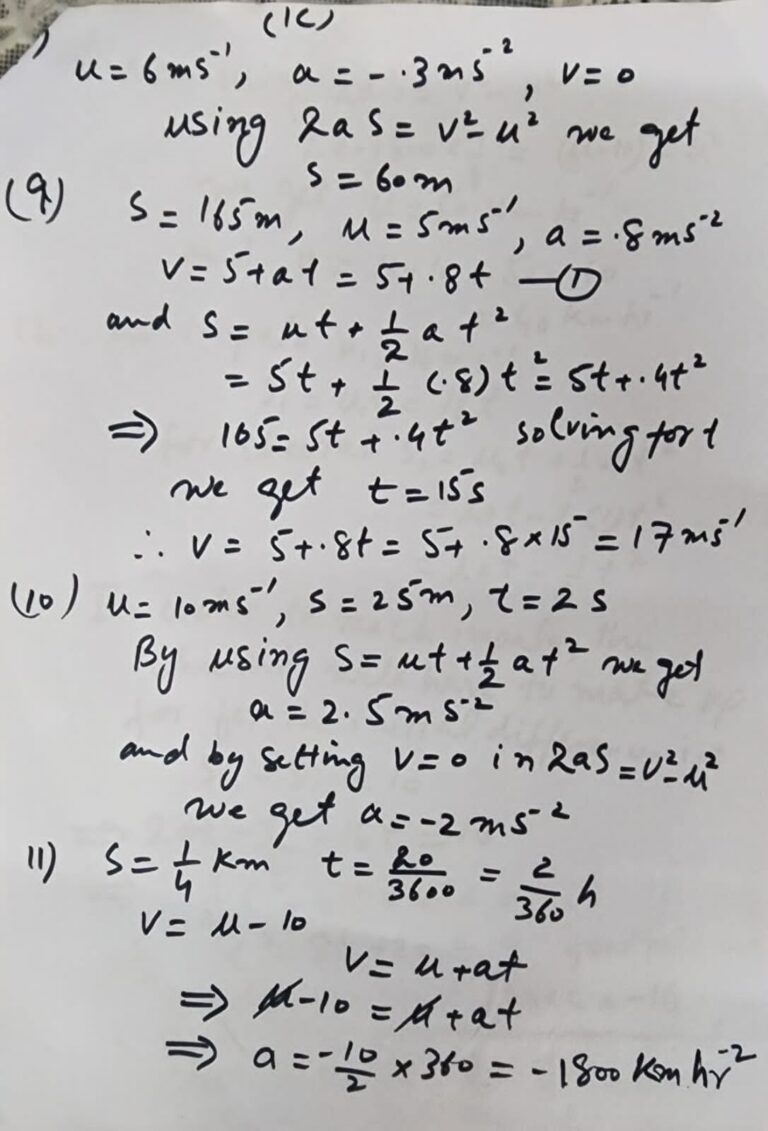 (1C)
)
u = 6 ms⁻¹, a = - .3 ms⁻², v = 0
using 2aS = v² - u² we get
S = 60 m
(9) S = 165 m, u = 5 ms⁻¹, a = .8 ms⁻²
v = 5 + at = 5 + .8t —①
and S = ut + 1/2 at²
= 5t + 1/2 (.8)t² = 5t + .4t²
⇒ 165 = 5t + .4t² solving for t
we get t = 15 s
∴ v = 5 + .8t = 5 + .8 × 15 = 17 ms⁻¹
(10) u = 10 ms⁻¹, S = 25 m, t = 2 s
By using S = ut + 1/2 at² we get
a = 2.5 ms⁻²
and by setting v = 0 in 2aS = v² - u²
we get a = -2 ms⁻²
11) S = 1/4 Km t = 20/3600 = 2/360 h
v = u - 10
v = u + at
⇒ u - 10 = u + at
⇒ a = -10/2 × 360 = -1800 Km hr⁻²